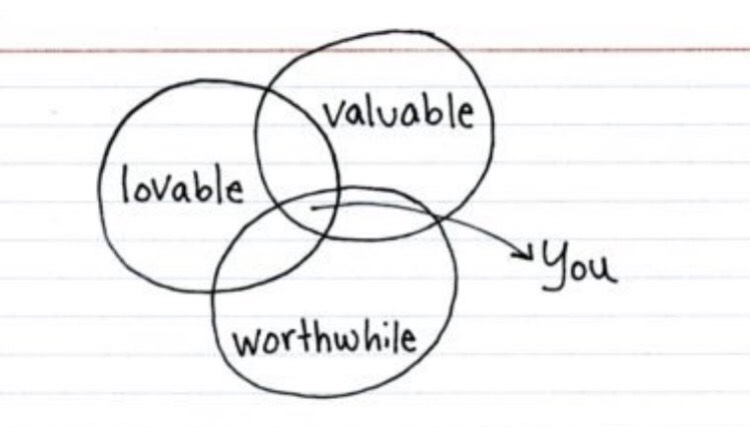 valuable
lovable
You
worthwhile